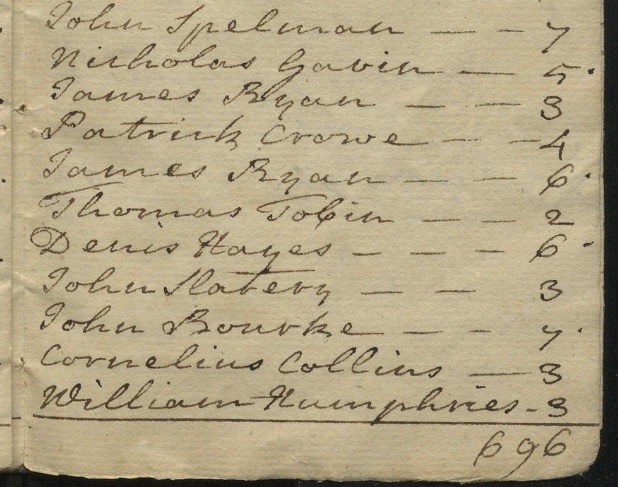 John Spelman — — 7
Nicholas Gavin — — 5.
James Ryan — — — 3
Patrick Crowe — — — 4
James Ryan — — — 6.
Thomas Tobin — — — 2
Denis Hayes — — — — 6.
John Slatery — — — 3
John Bourke — — — 7.
Cornelius Collins — 3
William Humphries - 3
696